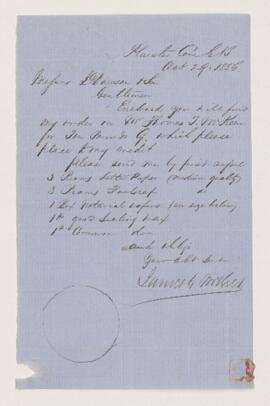 Plaister Cove C.B.
Oct 29. 1856
Messrs Dawson & Co
Gentlemen
Enclosed you will find
my order on Mr Thomas
for Ten Pounds which please
place to my credit
Please send me by first
3 Reams Letter Paper (medium quality)
3 Reams Foolscap do
1 Box Notarial wafers (size below)
1 lb good Sealing Wax
1 lb Common do
and oblige
Your Obt Servt
James G